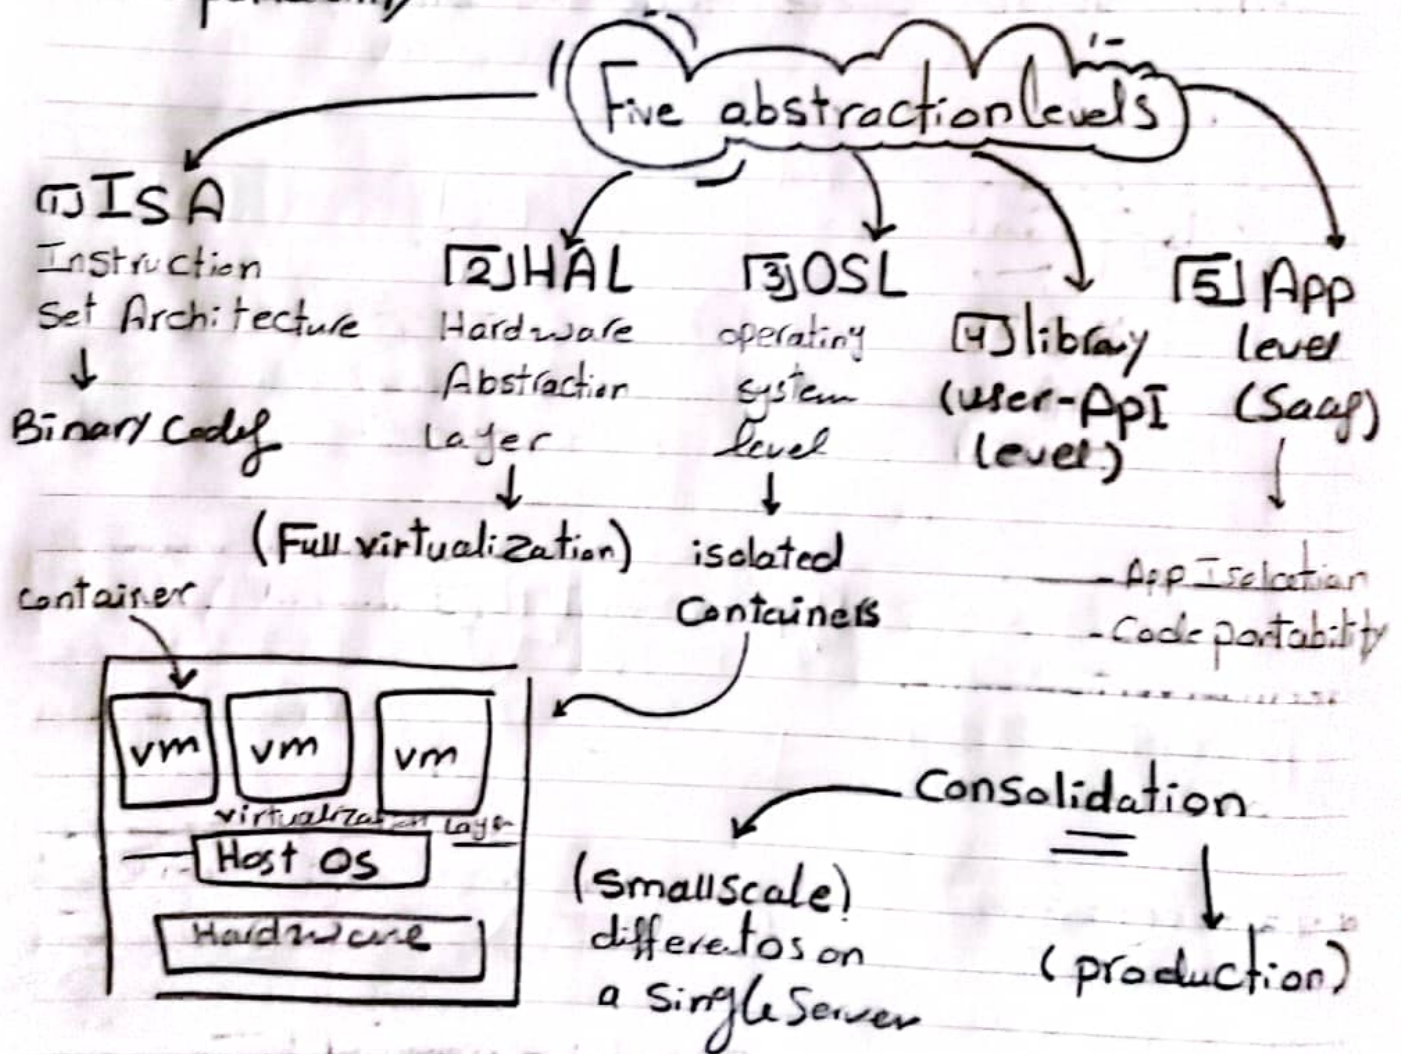 Five abstraction levels
[1] ISA
Instruction
Set Architecture
Binary Codes
[2] HAL
Hardware
Abstraction
Layer
(Full virtualization)
[3] OSL
operating
system
level
isolated
Containers
[4] library
(user-ApI
level)
[5] App
level
(Saas)
- App Isolation
- Code portability
container
vm vm vm
virtualization Layer
Host OS
Hardware
Consolidation
(small scale)
differet os on
a single Server
(production)